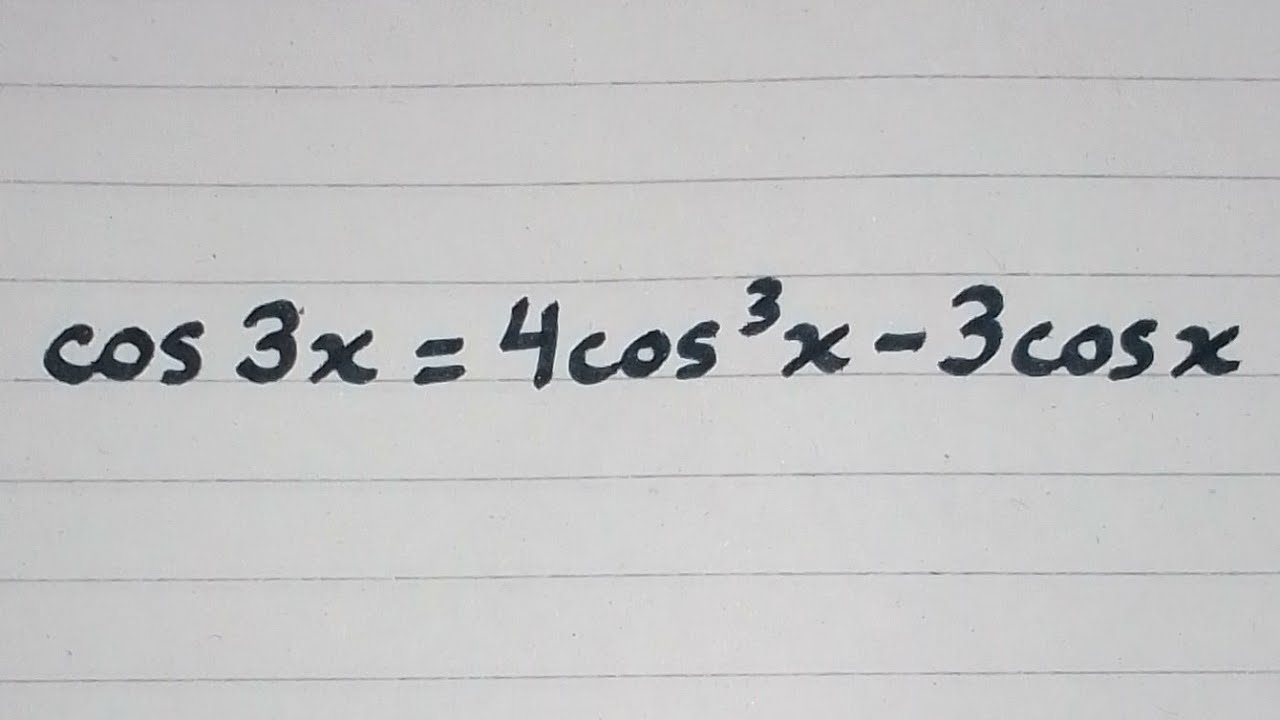 cos 3x = 4cos³x - 3cosx